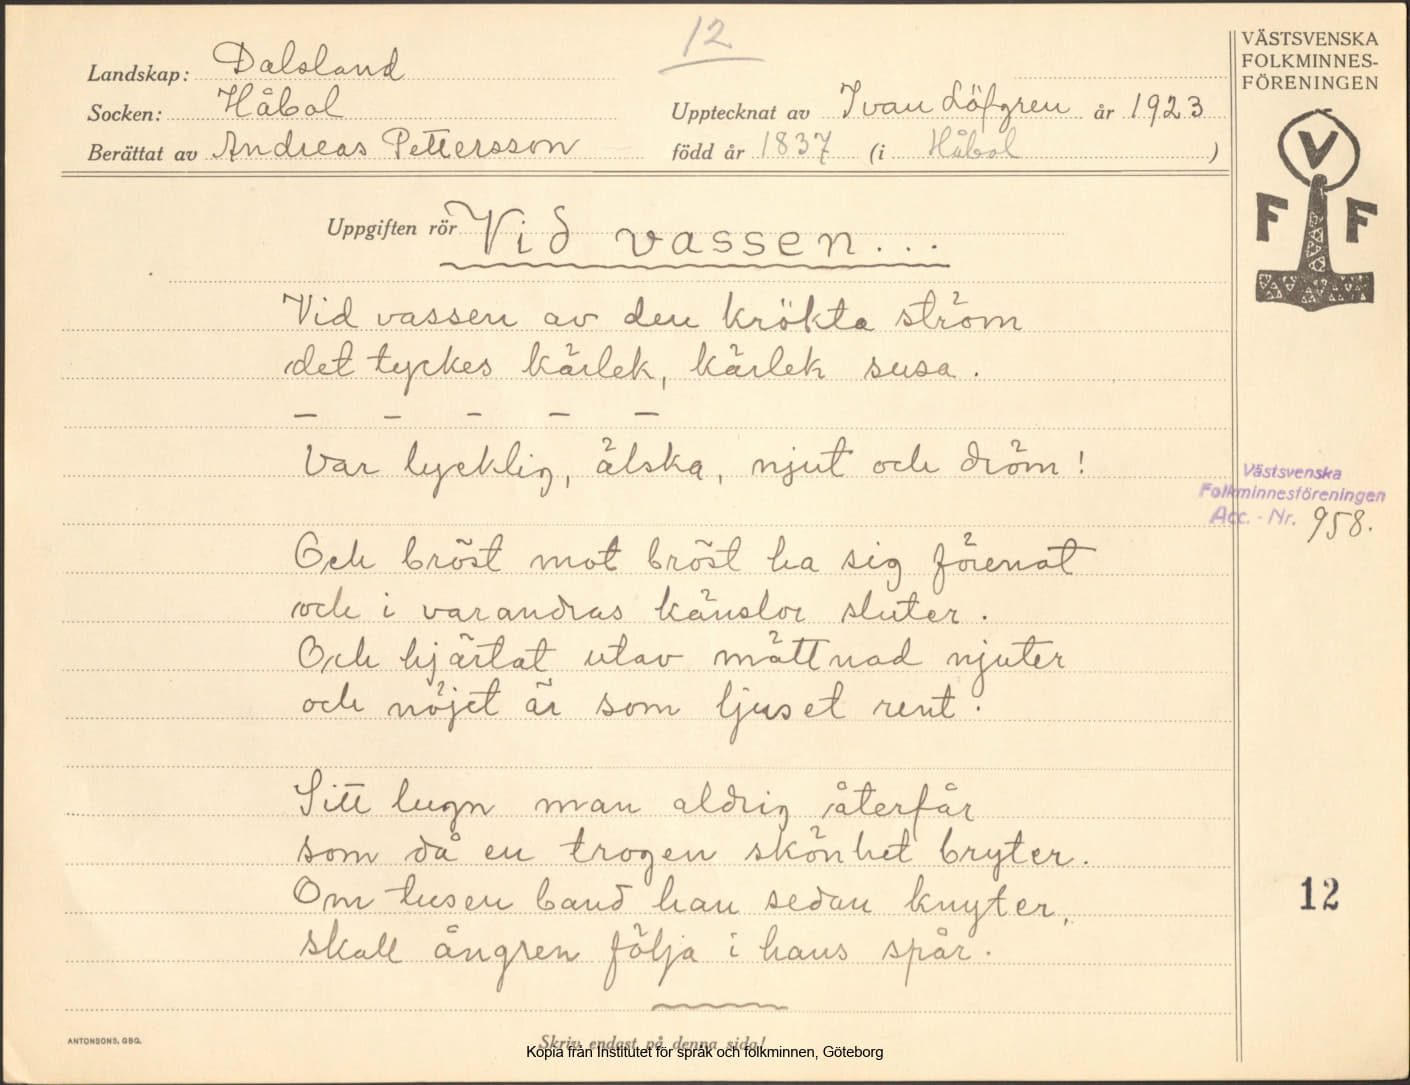 12
Landskap: Dalsland
Socken: Håbol
Upptecknat av Ivan Löfgren år 1923
Berättat av Andreas Pettersson född år 1837 (i Håbol)
VÄSTSVENSKA
FOLKMINNES-
FÖRENINGEN
V
F F
Uppgiften rör Vid vassen...
Vid vassen av den krökta ström
det tyckes kärlek, kärlek susa.
– – – – –
Var lycklig, älska, njut och dröm!
Västsvenska
Folkminnesföreningen
Acc. - Nr. 958.
Och bröst mot bröst ha sig förenat
och i varandras känslor sluter.
Och hjärtat utav mättnad njuter
och nöjet är som ljuset rent.
Sitt lugn man aldrig återfår
som då en trogen skönhet bryter.
Om tusen band han sedan knyter,
skall ångren följa i hans spår.
12
ANTONSONS, GBG.
Skriv endast på denna sida!
Kopia från Institutet för språk och folkminnen, Göteborg